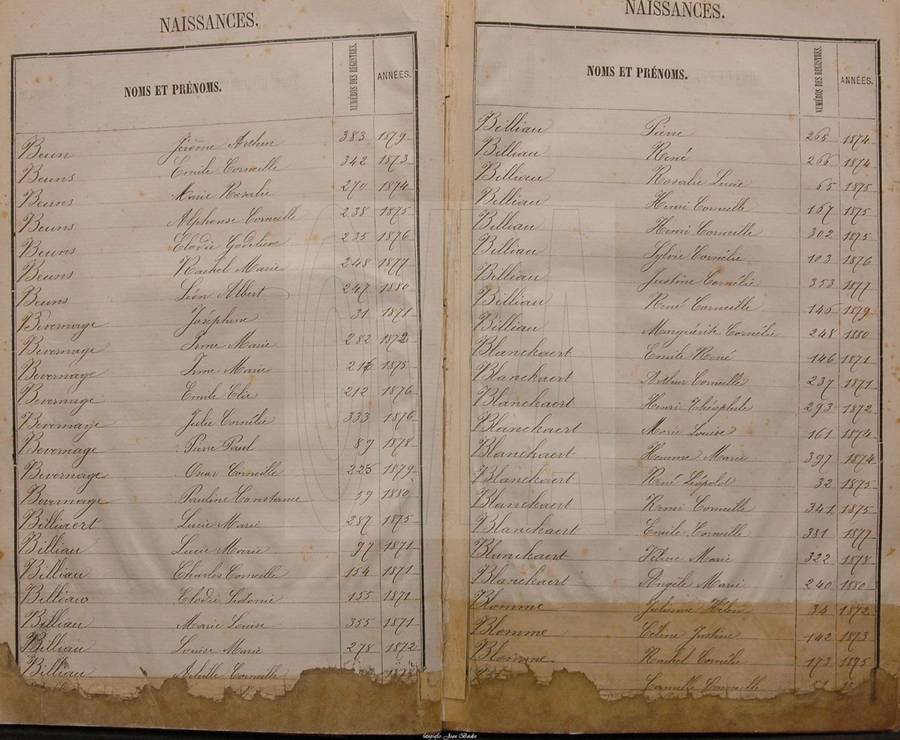 NAISSANCES.
NOMS ET PRÉNOMS. NUMÉROS DES REGISTRES. ANNÉES.
Beun Jérôme Arthur 383 1879
Beuns Emile Corneille 342 1873
Beuns Marie Rosalie 270 1874
Beuns Alphonse Corneille 238 1875
Beuns Elodie Godelieve 235 1876
Beuns Rachel Marie 248 1877
Beuns Léon Albert 247 1880
Bevernage Joséphine 31 1871
Bevernage Irme Marie 282 1872
Bevernage Irme Marie 1875
Bevernage Emile Elie 212 1876
Bevernage Julie Cornélie 333 1876
Bevernage Pierre Paul 87 1878
Bevernage Omar Corneille 225 1879
Bevernage Pauline Constance 59 1880
Billiaert Lucie Marie 287 1875
Billiau Lucie Marie 97 1871
Billiau Charles Corneille 154 1871
Billiau Elodie Sidonie 155 1871
Billiau Marie Louise 355 1871
Billiau Louise Marie 278 1872
Billiau Achille Corneille
NAISSANCES.
NOMS ET PRÉNOMS. NUMÉROS DES REGISTRES. ANNÉES.
Billiau Pierre 265 1874
Billiau René 266 1874
Billiau Rosalie Lucie 65 1875
Billiau Henri Corneille 167 1875
Billiau Henri Corneille 302 1875
Billiau Sylvie Cornélie 103 1876
Billiau Justine Cornélie 353 1877
Billiau René Corneille 145 1879
Billiau Marguérite Cornélie 248 1880
Blanckaert Emile René 146 1871
Blanckaert Arthur Corneille 237 1871
Blanckaert Henri Théophile 293 1872
Blanckaert Marie Louise 161 1874
Blanckaert Marie 397 1874
Blanckaert René Léopold 32 1875
Blanckaert Remi Corneille 341 1875
Blanckaert Emile Corneille 381 1877
Blanckaert Marie 322 1878
Blanckaert Angèle Marie 240 1880
Blomme Julienne 34 1872
Blomme Céline Justine 142 1873
Blomme Rachel Cornélie 173 1875
Camille Corneille